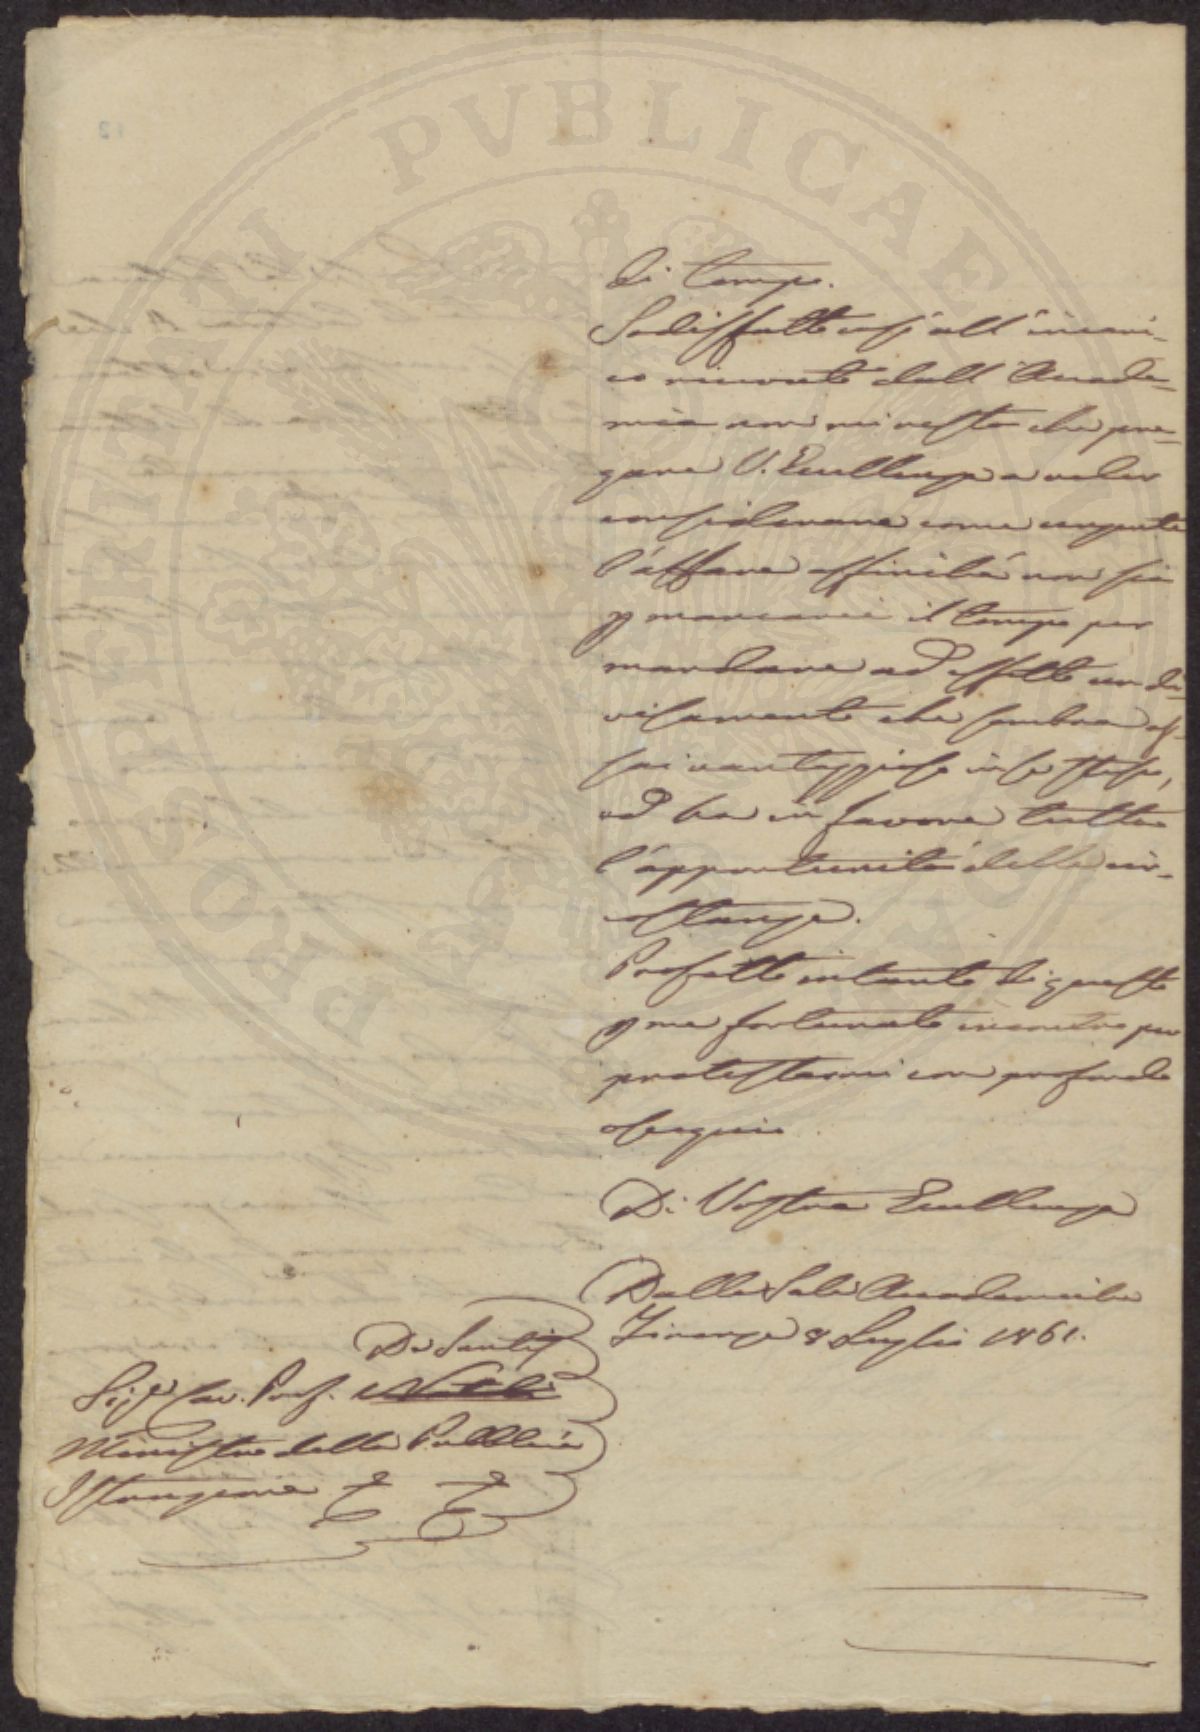 di tempo.
Sodisfatto così all'incari-
co ricevuto dall'Accade-
mia non mi resta che pre-
gare V. Eccellenza a voler
considerare come urgente
l'affare affinché non sia
p mancarci il tempo per
mandare ad effetto un di-
visamento che sembra as-
sai vantaggioso in se stesso,
ed ha in favore tutta
l'opportunità delle cir-
costanze.
Profitto intanto di questo
p me fortunato incontro per
protestarmi con profondo
ossequio
Di Vostra Eccellenza
Dalle Sale Accademiche
Firenze 8 Luglio 1861.
De Sanctis
Sigr Cav. Prof. Natoli
Ministro della Pubblica
Istruzione
PROSPERITATI PVBLICAE